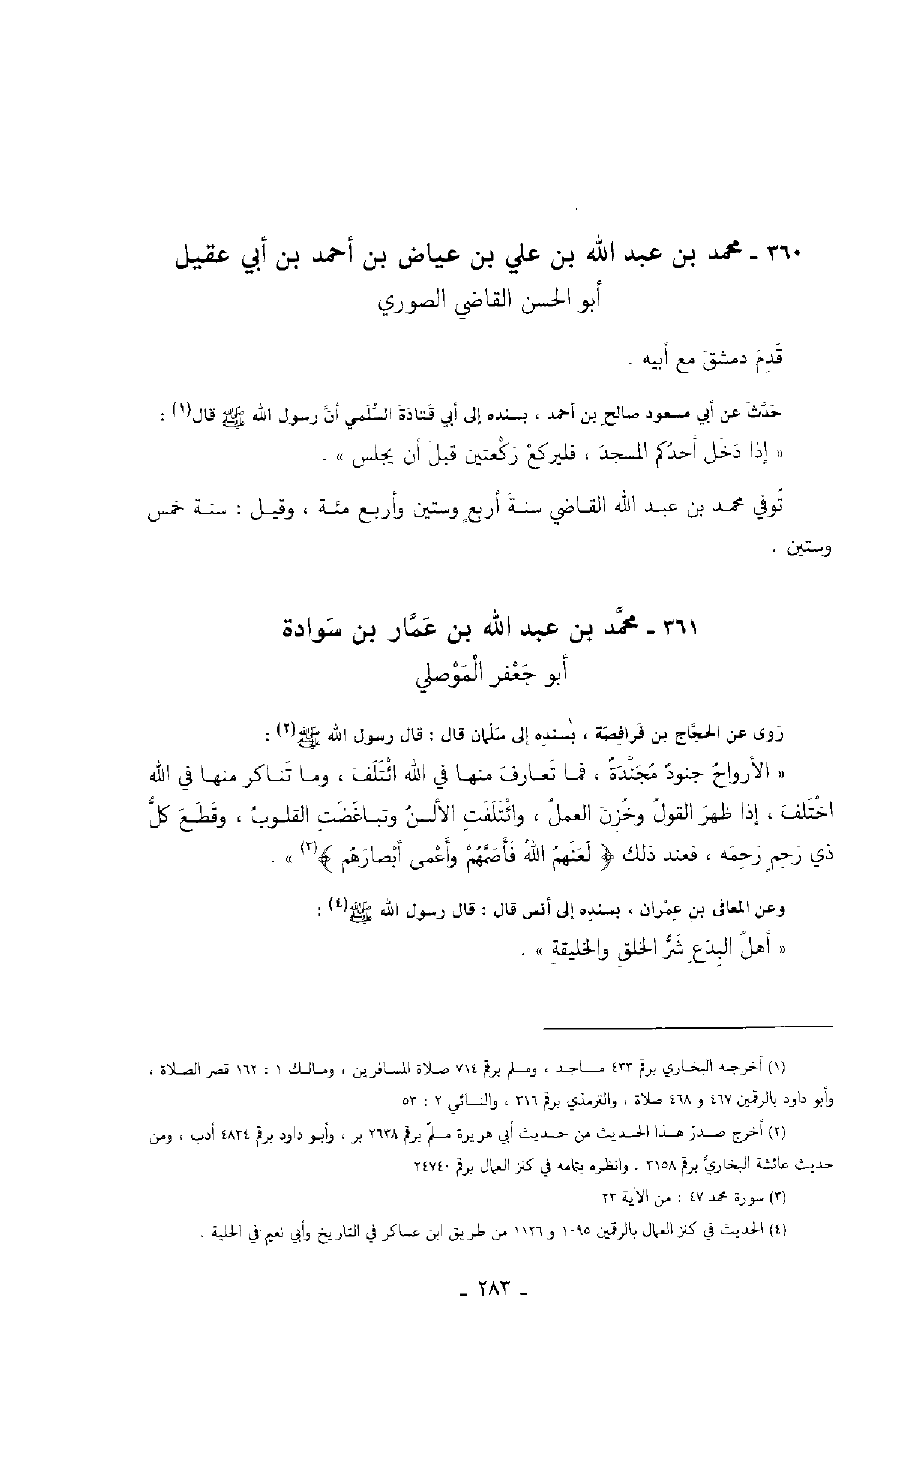 ٣٦٠ ـ محمد بن عبد الله بن علي بن عياض بن أحمد بن أبي عقيل
أبو الحسن القاضي الصوري
قَدِمَ دمشقَ مع أبيه .
حَدَّثَ عن أبي مسعود صالحِ بن أحمد ، بسنده إلى أبي قَتادَةَ السُّلَمي أنَّ رسول الله ﷺ قال(١) :
« إذا دَخَلَ أحدُكم المسجدَ ، فليركعْ رَكْعتين قبلَ أن يجلس » .
تُوفي محمد بن عبد الله القاضي سنةَ أربعٍ وستين وأربع مئة ، وقيل : سنة خمس
وستين .
٣٦١ ـ محمَّد بن عبد الله بن عَمَّار بن سَوادة
أبو جَعْفر الْمَوْصلي
رَوى عن الحجَّاج بن فُرافِصَة ، بسندِه إلى سَلمان قال : قال رسول الله ﷺ(٢) :
« الأرواحُ جنودٌ مُجَنَّدَةٌ ، فما تَعارفَ منها في الله ائْتَلَفَ ، وما تَناكر منها في الله
اخْتَلف ، إذا ظهرَ القولُ وخُزِنَ العملُ ، وائْتَلَفَتِ الألسنُ وتباغَضَتِ القلوبُ ، وقَطَعَ كلُّ
ذي رَحِمٍ رَحِمَه ، فعند ذلك ﴿ لَعَنَهمُ اللهُ فَأَصَمَّهُمْ وأَعْمى أَبْصارَهُم ﴾(٣) » .
وعن المعافى بن عِمْران ، بسندِه إلى أنس قال : قال رسول الله ﷺ(٤) :
« أهلُ البِدَعِ شَرُّ الخلقِ والخليقةِ » .
(١) أخرجه البخاري برقم ٤٣٣ مساجد ، ومسلم برقم ٧١٤ صلاة المسافرين ، ومالك ١ : ١٦٢ قصر الصلاة ،
وأبو داود بالرقمين ٤٦٧ و ٤٦٨ صلاة ، والترمذي برقم ٣١٦ ، والنسائي ٢ : ٥٣
(٢) أخرج صدرَ هذا الحديث من حديث أبي هريرة مسلمٌ برقم ٢٦٣٨ بر ، وأبو داود برقم ٤٨٣٤ أدب ، ومن
حديث عائشة البخاريُّ برقم ٣١٥٨ . وانظره بتمامه في كنز العمال برقم ٢٤٧٤٠
(٣) سورة محمد ٤٧ : من الآية ٢٣
(٤) الحديث في كنز العمال بالرقمين ١٠٩٥ و ١١٢٦ من طريق ابن عساكر في التاريخ وأبي نعيم في الحلية .
ـ ٢٨٣ ـ